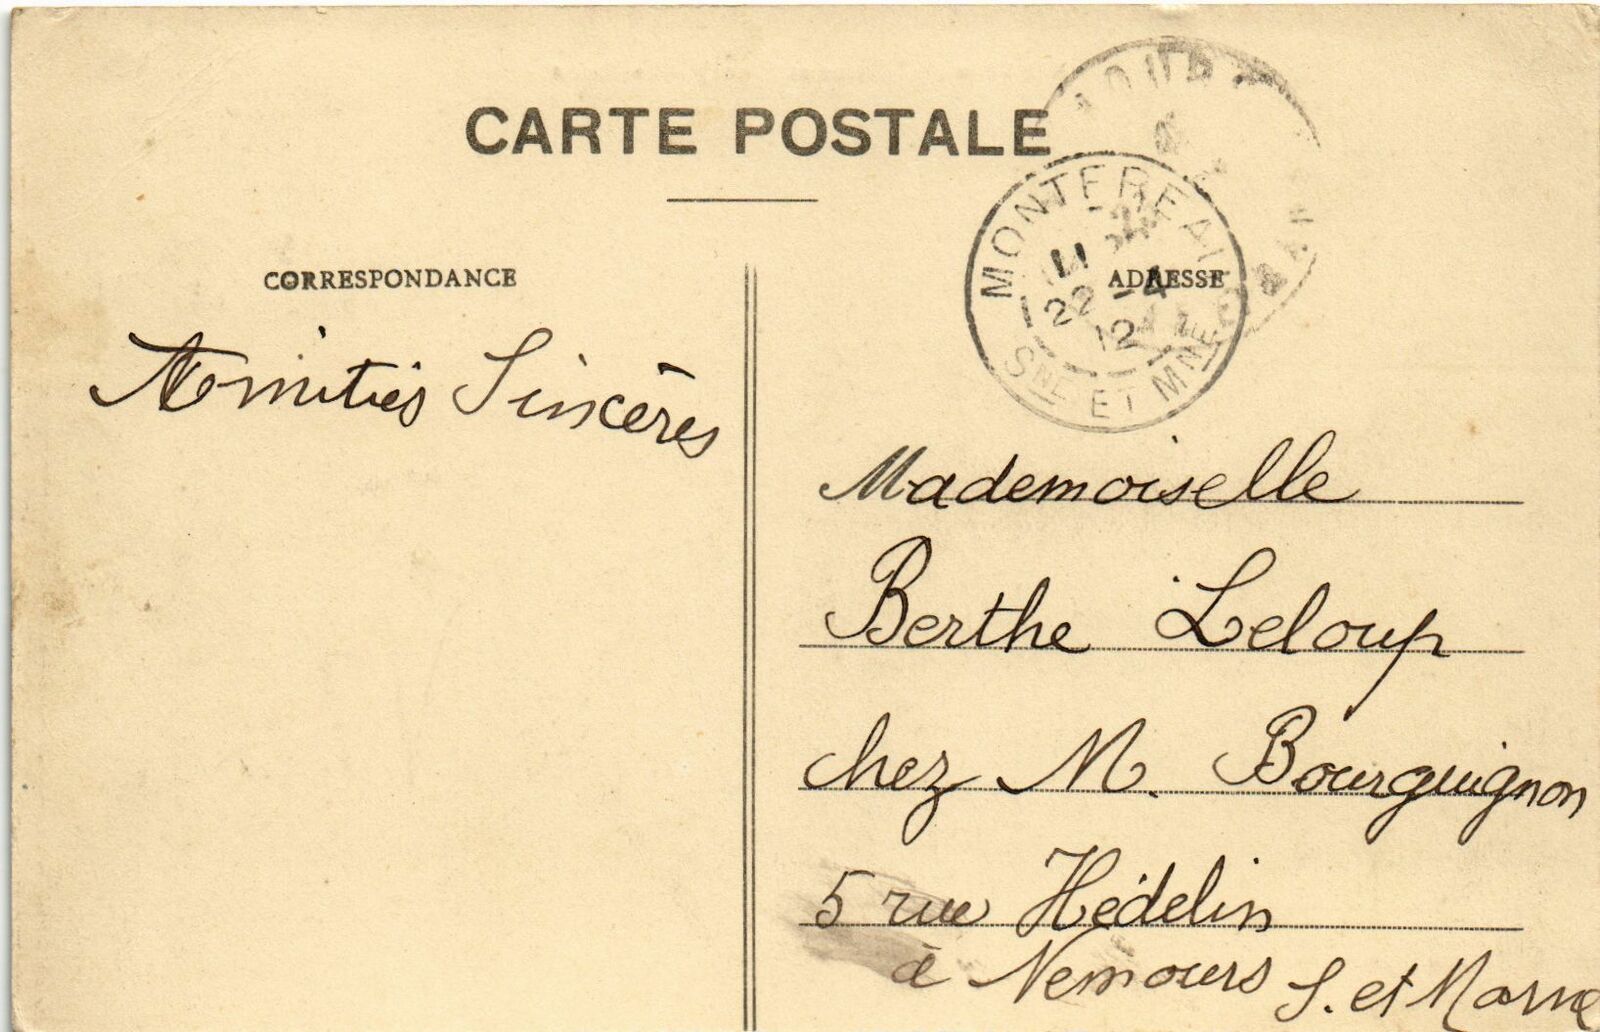 CARTE POSTALE
CORRESPONDANCE
ADRESSE
MONTEREAU
11
22 -4
12
SNE ET MNE
Amitiés Sincères
Mademoiselle
Berthe Leloup
chez M. Bourguignon
5 rue Hédelin
à Nemours S. et Marne